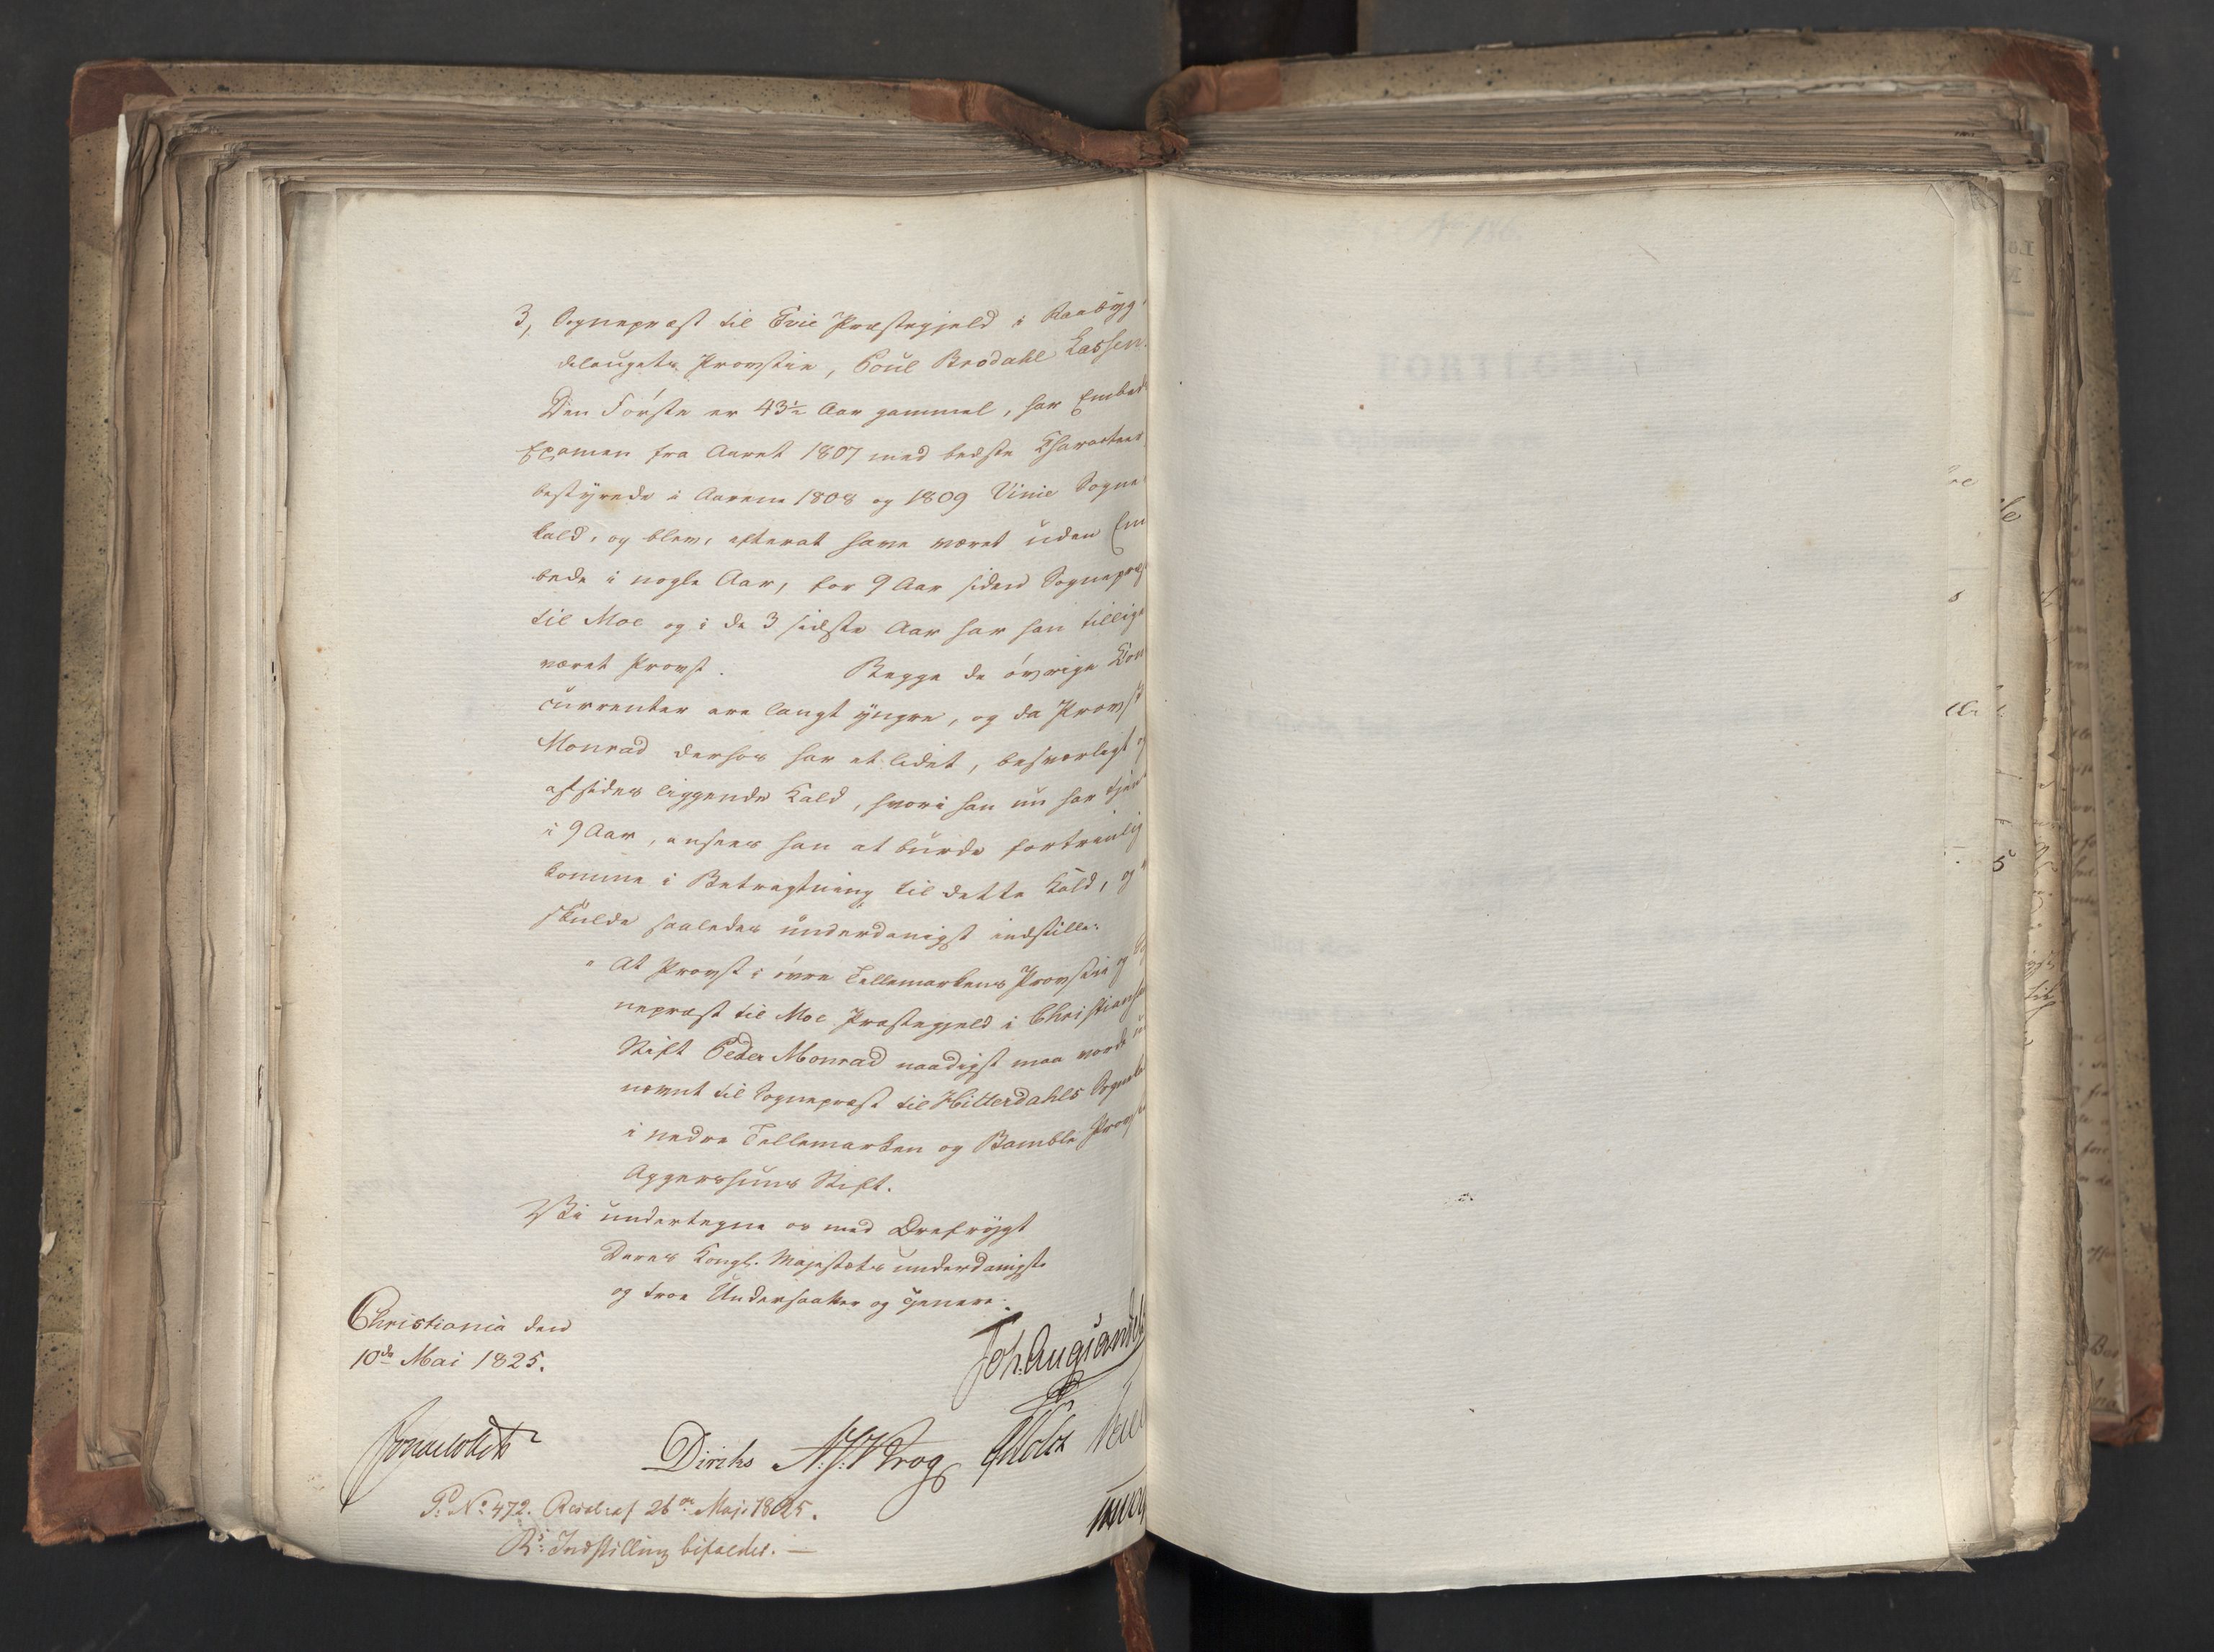 3, Sognepræst til Evie Præstegjeld i Raabyg-
delaugets Provstie, Poul Brodahl Lassen.
Den Første er 43½ Aar gammel, har Embeds
Examen fra Aaret 1807 med bedste Character
bestyrede i Aarene 1808 og 1809 Vinie Sogne
kald, og blev, efterat have været uden Em
bede i nogle Aar, for 9 Aar siden Sognepræst
til Moe og i de 3 sidste Aar har han tillige
været Provst. Begge de øvrige Con
currenter ere langt yngre, og da Provst
Monrad derhos har et lidet, besværligt og
afsides liggende Kald, hvori han nu har tjent
i 9 Aar, ansees han at burde fortrinlig
komme i Betragtning til dette Kald, og
skulde saaledes underdanigst indstille:
" At Provst i øvre Tellemarkens Provstie og Sog
nepræst til Moe Præstegjeld i Christiansa
Stift Peder Monrad naadigst maa vorde ud
nævnt til Sognepræst til Hitterdahls Sognekal
i nedre Tellemarken og Bamble Provst
Aggershuus Stift.
Vi undertegne os med Ærefrygt
Deres Kongl. Majestæts underdanigste
og troe Undersaatter og Tjenere.
Christiania den
10de Mai 1825.
Joh. Aug. Sandels
Diriks N. J. Krog
P. No 472. Resol: af 26de Maji 1825.
Rs: Indstilling bifaldes. —